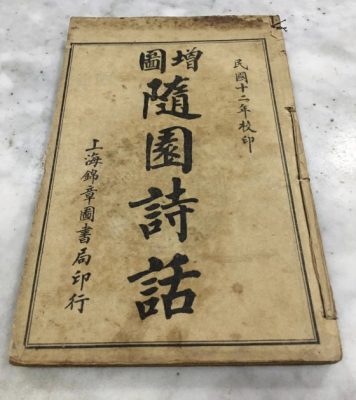 民國十二年校印
增圖
隨園詩話
上海錦章圖書局印行